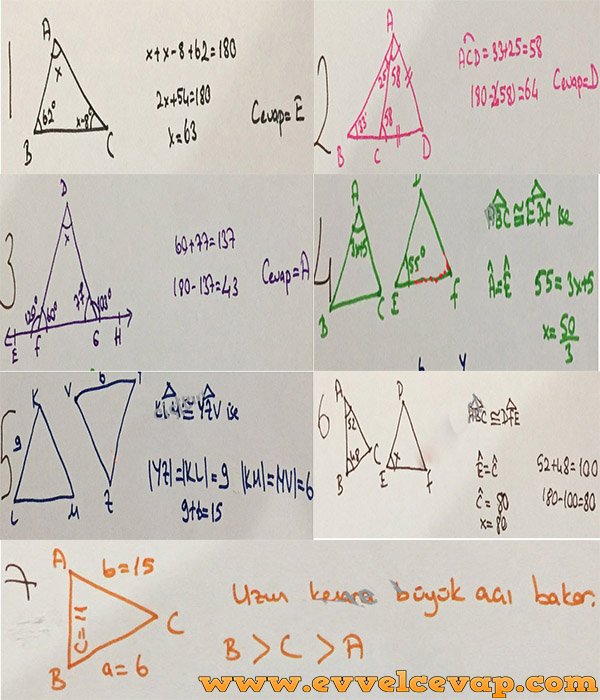 1
A
x
62°
x-8°
B
C
x+x-8+62=180
2x+54=180
x=63
Cevap=E
2
A
25
58
33
58
B
C
D
ACD=33+25=58
180-2(58)=64
Cevap=D
3
D
x
120°
60°
77°
103°
E
F
G
H
60+77=137
180-137=43
Cevap=A
4
A
3x+5
B
C
D
55°
E
F
ABC≅EDF ise
Â=Ê
55=3x+5
x=50/3
5
K
9
L
M
V
6
Z
KLM≅YZV ise
|YZ|=|KL|=9 |KM|=|YV|=6
9+6=15
6
A
52
48
B
C
D
x
E
F
ABC≅DFE
Ê=Ĉ
52+48=100
Ĉ=80
180-100=80
x=80
7
A
b=15
c=11
C
B
a=6
Uzun kenara büyük açı bakar.
B>C>A
www.evvelcevap.com